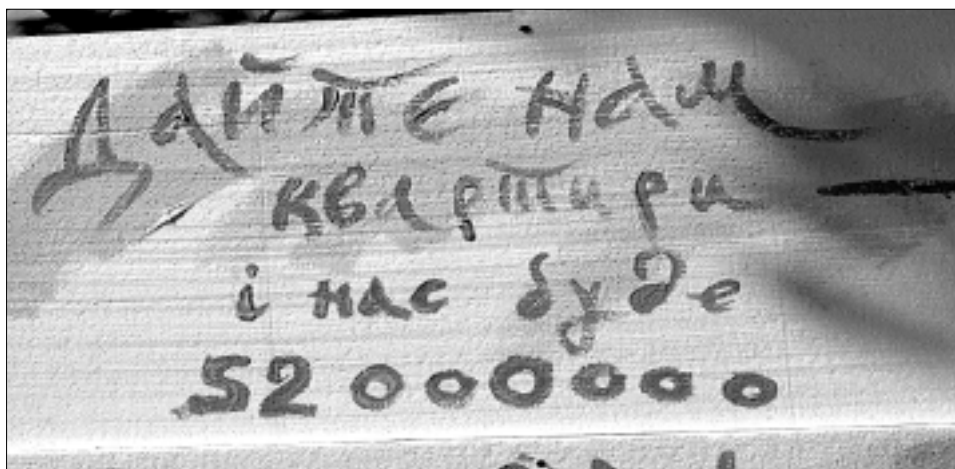 Дайте нам
квартири
і нас буде
52 000000